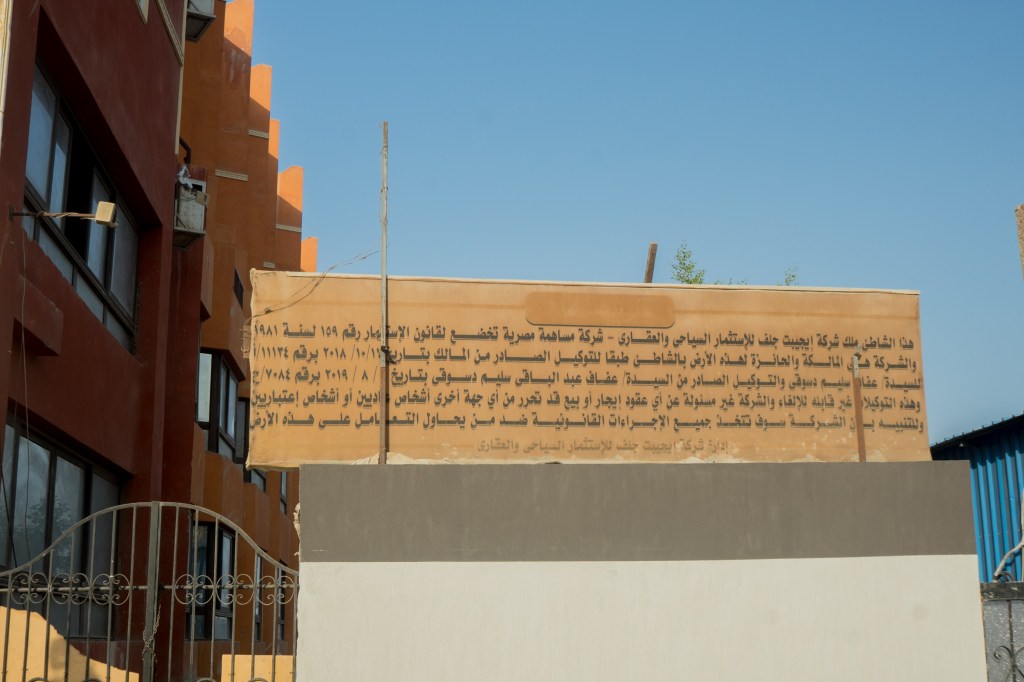 هذا الشاطئ ملك شركة ايجيبت جلف للإستثمار السياحى والعقارى - شركة مساهمة مصرية تخضع لقانون الإستثمار رقم ١٥٩ لسنة ١٩٨١
والشركة هى المالكة والحائزة لهذه الأرض بالشاطئ طبقا للتوكيل الصادر من المالك بتاريخ ٢٠١٨/١٠/ برقم ١١١٣٤/
للسيدة/ عفاف سليم دسوقى والتوكيل الصادر من السيدة/ عفاف عبد الباقى سليم دسوقى بتاريخ / ٨ / ٢٠١٩ برقم ٧٠٨٤/ح
وهذه التوكيلات غير قابله للإلغاء والشركة غير مسئولة عن أي عقود ايجار أو بيع قد تحرر من أي جهة أخرى أشخاص عاديين أو أشخاص إعتباريين
وللتنبيه بأن الشركة سوف تتخذ جميع الإجراءات القانونية ضد من يحاول التعامل على هذه الأرض
إدارة شركة إيجيبت جلف للإستثمار السياحى والعقارى